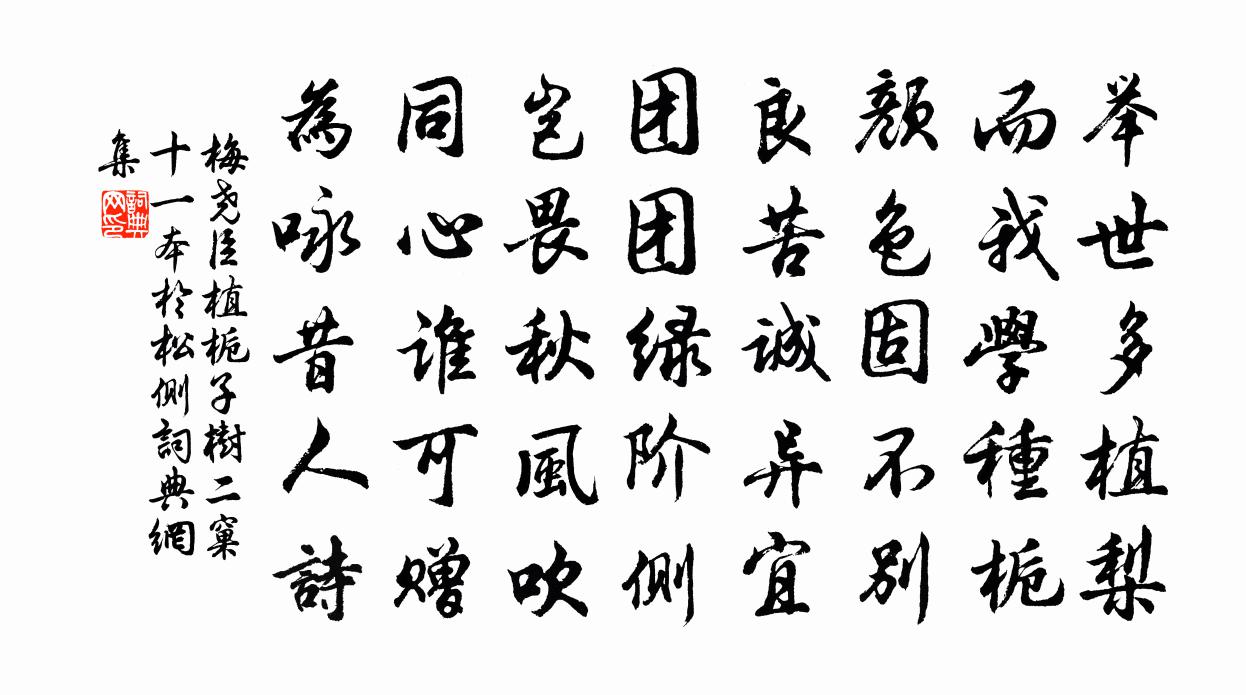 举世多植梨
而我學種栀
颜色固不别
良苦诚异宜
团团绿阶侧
岂畏秋風吹
同心谁可赠
為咏昔人詩
梅尧臣植栀子樹二窠
十一本於松側詞典網
集
詞典
网印